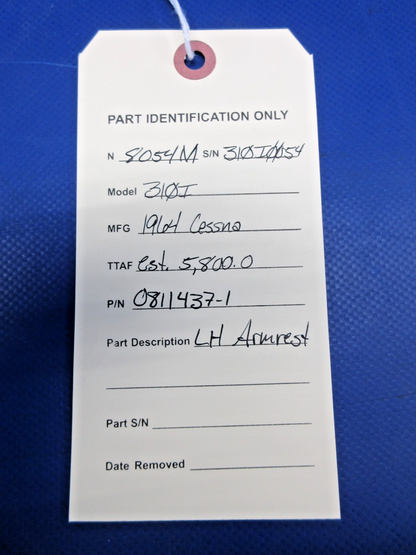 PART IDENTIFICATION ONLY
N 8054M S/N 310I0054
Model 310I
MFG 1964 Cessna
TTAF est. 5,800.0
P/N 0811437-1
Part Description LH Armrest
Part S/N
Date Removed